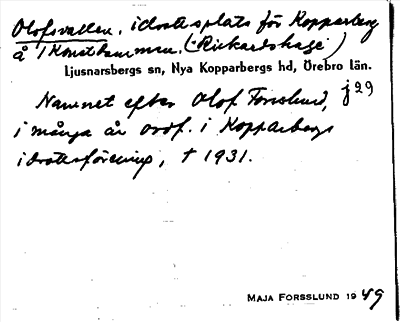 Olofsvallen, idrottsplats för Kopparberg
å 1 Konsthammaren. (= Rickardshage)
Ljusnarsbergs sn, Nya Kopparbergs hd, Örebro län.
j29
Namnet efter Olof Forslund,
i många år ordf. i Kopparbergs
idrottsförening, † 1931.
MAJA FORSSLUND 1949